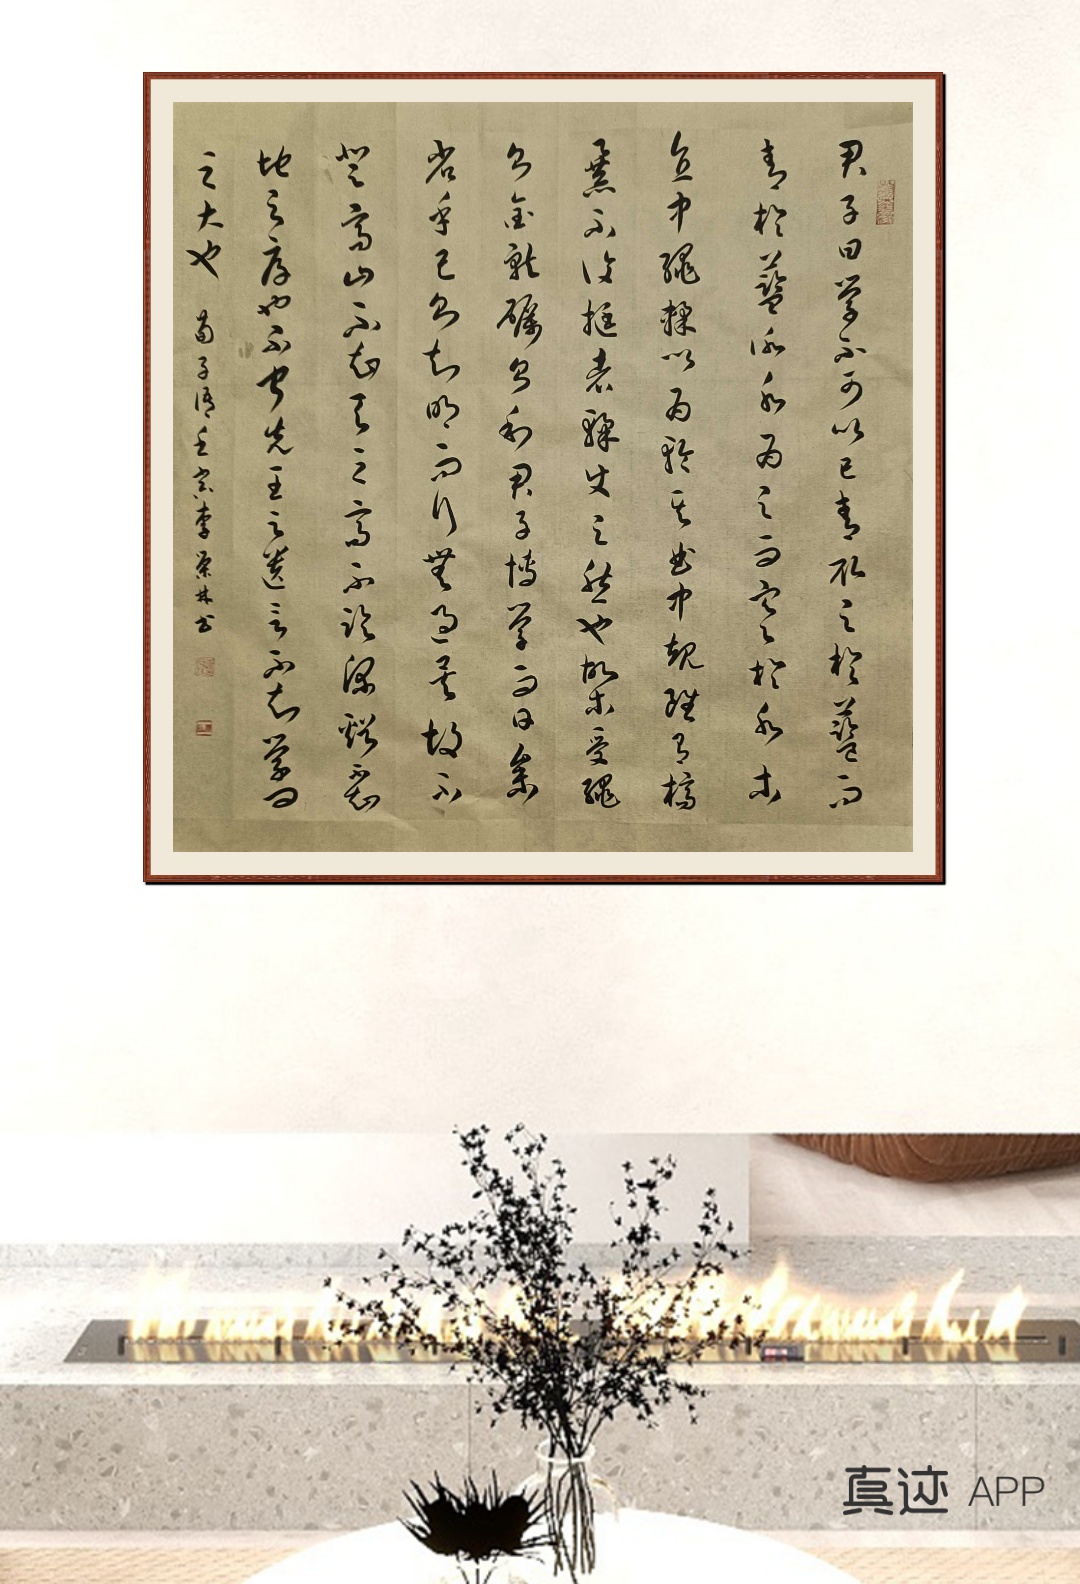 君子曰學不可以已青取之於藍而
青於藍冰水為之而寒於水木
直中繩輮以為輪其曲中規雖有槁
暴不復挺者輮使之然也故木受繩
則金就礪則利君子博學而日參
省乎己則知明而行無過矣故不
登高山不知天之高不臨深谿不知
地之厚也不聞先王之遺言不知學問
之大也
荀子語 李榮林書
真迹 APP